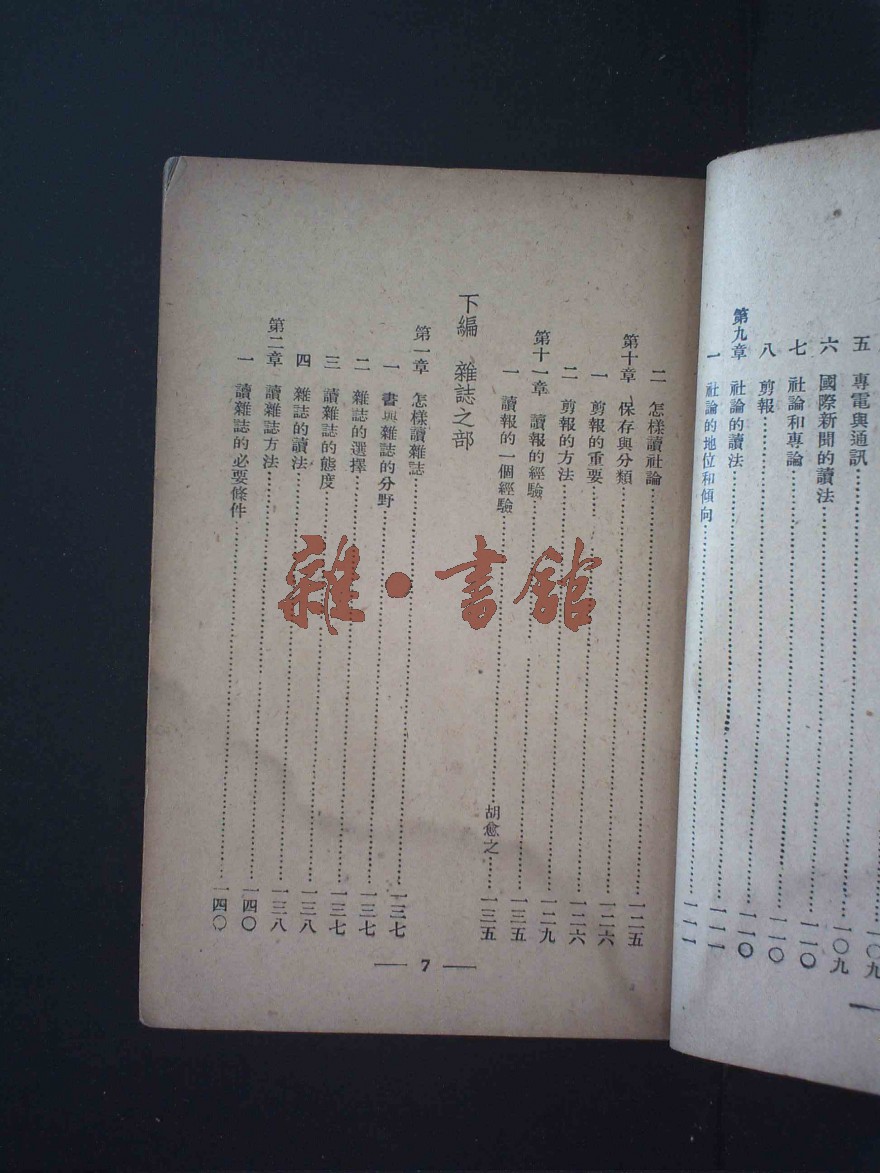 一〇九
五 專電與通訊……一〇九
六 國際新聞的讀法……一一〇
七 社論和專論……一一〇
八 剪報……一一〇
第九章 社論的讀法……一一一
一 社論的地位和傾向……一一一
二 怎樣讀社論……一二五
第十章 保存與分類……一二六
一 剪報的重要……一二六
二 剪報的方法……一二九
第十一章 讀報的經驗……一三五
一 讀報的一個經驗……胡愈之……一三五
下編 雜誌之部
第一章 怎樣讀雜誌……一三七
一 書與雜誌的分野……一三七
二 雜誌的選擇……一三七
三 讀雜誌的態度……一三八
四 雜誌的讀法……一三八
第二章 讀雜誌方法……一四〇
一 讀雜誌的必要條件……一四〇
— 7 —
雜·書館